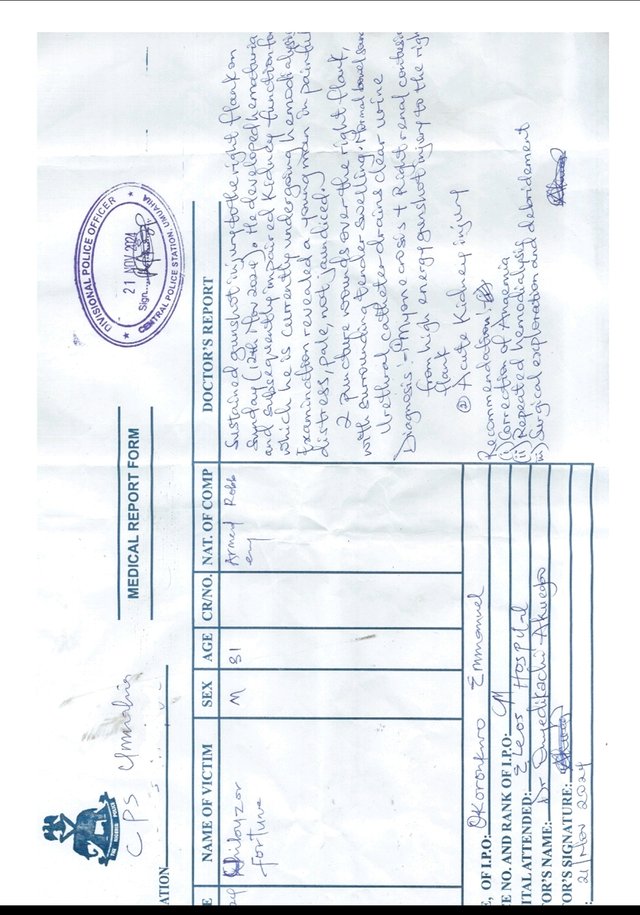 THE NIGERIA POLICE
CPS Umuahia
ATION
MEDICAL REPORT FORM
DIVISIONAL POLICE OFFICER
21 NOV 2024
Sign
CENTRAL POLICE STATION, UMUAHIA
E NAME OF VICTIM SEX AGE CR/NO. NAT. OF COMP DOCTOR'S REPORT
fortune M 31 Armed Robb
ery
Sustained gunshot injury to the right flank on
Sunday (12th Nov 2024). He developed hematuria
and subsequently impaired kidney function for
which he is currently undergoing hemodialysis
Examination revealed a young man in painful
distress, pale, not jaundiced.
2 puncture wounds over the right flank,
with surrounding tender swelling. Normal bowel
Urethral catheter drains clear urine
Diagnosis:- Myonecrosis + Right renal contusion
from high energy gunshot injury to the right
flank
② Acute Kidney injury
Recommendation:
(i) Correction of Anaemia
(ii) Repeated hemodialysis
iii) Surgical exploration and debridement
, OF I.P.O: Okoronkwo Emmanuel
E NO. AND RANK OF I.P.O:
ITAL ATTENDED: Eleos Hospital
OR'S NAME: Dr Onyedikachi Akuego
OR'S SIGNATURE:
: 21 Nov 2024